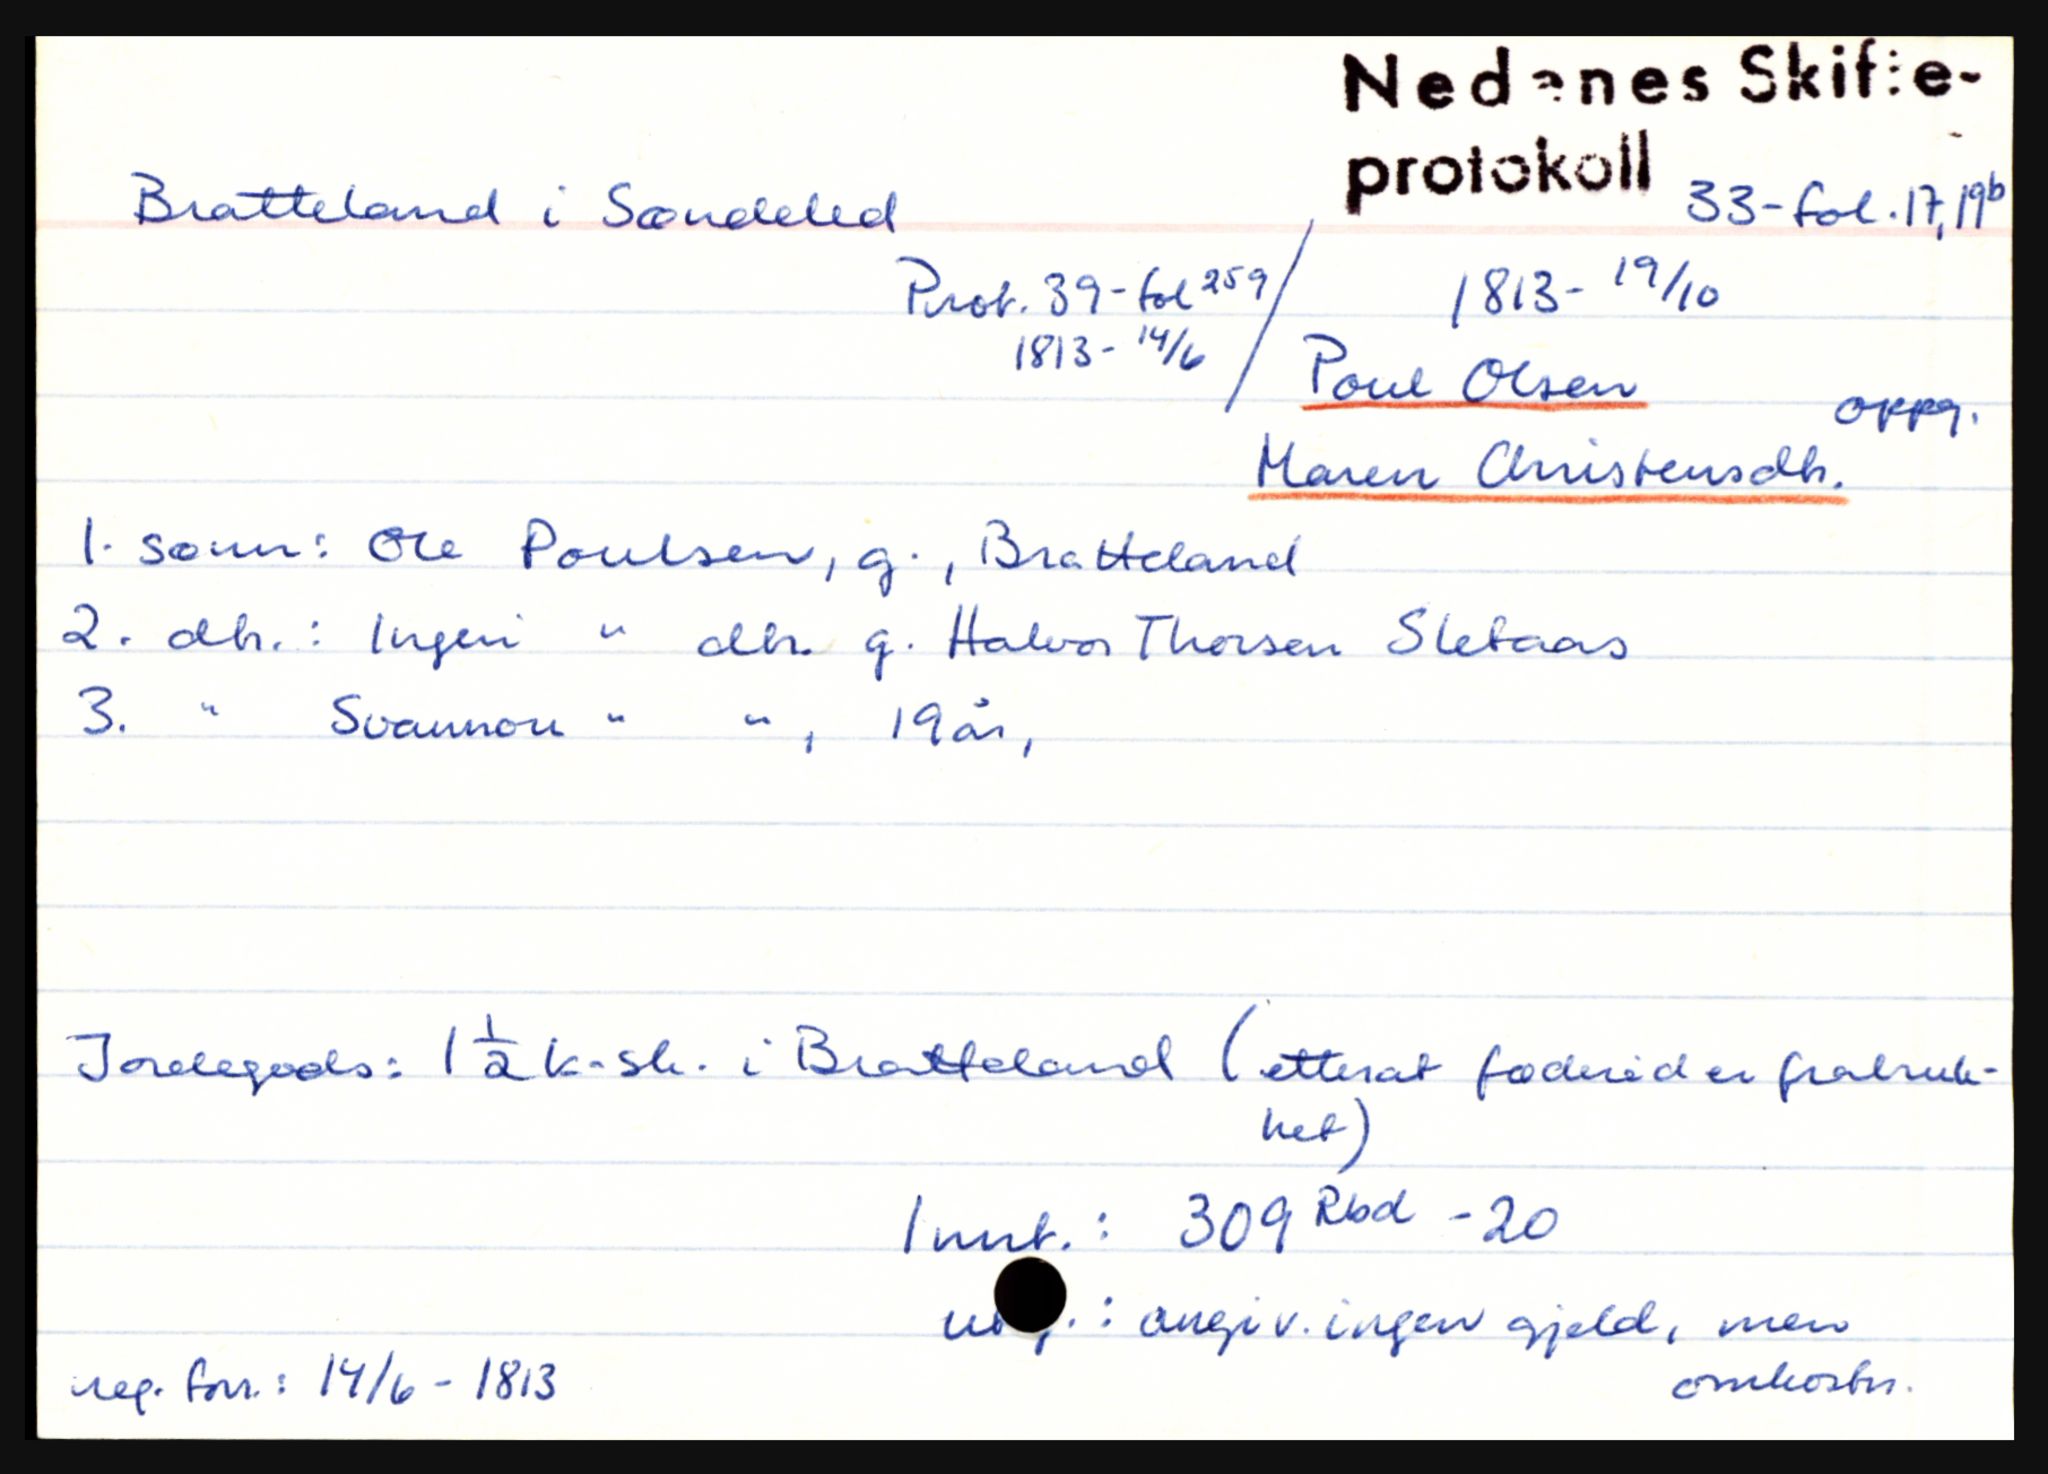 Nedenes Skifte-
protokoll
Bratteland i Søndeled
33-fol. 17, 19b
Prot. 39-fol 259
1813- 14/6
1813- 19/10
Poul Olsen
oppg.
Maren Christensdtr.
1. sønn: Ole Poulsen, g., Bratteland
2. dtr.: Ingeri " dtr. g. Halvor Thorsen Sletaas
3. " Svannou " ", 19 år,
Jordegods: 1 1/2 k-sk. i Bratteland (etterat føderåd er fratruk-
ket)
Innt.: 309 Rbd -20
: angiv. ingen gjeld, men
omkostn.
reg. forr.: 14/6 - 1813